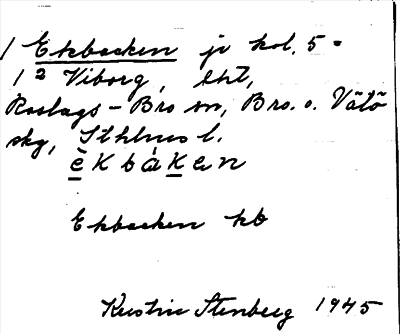 1 Ekbacken jr kol. 5 =
1 2 Viborg, lht,
Roslags-Bro sn, Bro o. Vätö
skg, Sthlms l.
èkbákan
Ekbacken kb
Kerstin Stenberg 1945